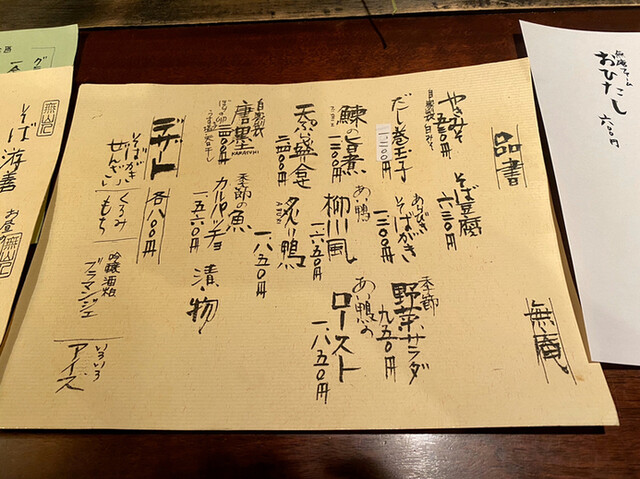 品書
無庵
やきみそ
自家製 白みそ
そば豆腐
六三〇円
季節
野菜サラダ
九五〇円
だし巻玉子
一、一〇〇円
あらびき
そばがき
一三〇〇円
あい鴨の
ロースト
一、八五〇円
鰊の旨煮
一三〇〇円
あい鴨
柳川風
一、六五〇円
天ぷら盛合
炙り鴨
一、八五〇円
自家製
唐墨
KARASUMI
季節の魚
カルパッチョ
一、五六〇円
漬物
デザート
各八〇〇円
そばがき
ぜんざい
くるみ
もち
吟醸酒粕
ブラマンジェ
いろいろ
アイス
おひたし
六〇〇円
無庵
そば游善
お昼の
無庵